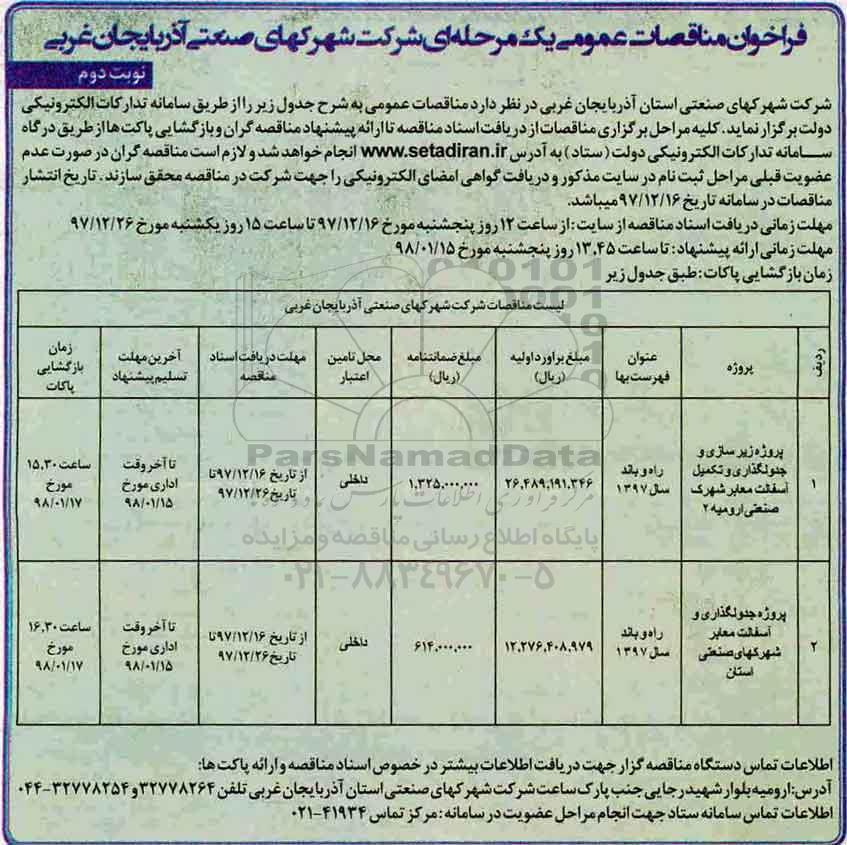 فراخوان مناقصات عمومی یک مرحله‌ای شرکت شهرکهای صنعتی آذربایجان غربی
نوبت دوم
شرکت شهرکهای صنعتی استان آذربایجان غربی در نظر دارد مناقصات عمومی به شرح جدول زیر را از طریق سامانه تدارکات الکترونیکی
دولت برگزار نماید. کلیه مراحل برگزاری مناقصات از دریافت اسناد مناقصه تا ارائه پیشنهاد مناقصه گران و بازگشایی پاکت ها از طریق درگاه
سامانه تدارکات الکترونیکی دولت (ستاد) به آدرس www.setadiran.ir انجام خواهد شد و لازم است مناقصه گران در صورت عدم
عضویت قبلی مراحل ثبت نام در سایت مذکور و دریافت گواهی امضای الکترونیکی را جهت شرکت در مناقصه محقق سازند. تاریخ انتشار
مناقصات در سامانه تاریخ ۹۷/۱۲/۱۶ میباشد.
مهلت زمانی دریافت اسناد مناقصه از سایت: از ساعت ۱۲ روز پنجشنبه مورخ ۹۷/۱۲/۱۶ تا ساعت ۱۵ روز یکشنبه مورخ ۹۷/۱۲/۲۶
مهلت زمانی ارائه پیشنهاد: تا ساعت ۱۳.۴۵ روز پنجشنبه مورخ ۹۸/۰۱/۱۵
زمان بازگشایی پاکات: طبق جدول زیر
لیست مناقصات شرکت شهرکهای صنعتی آذربایجان غربی
ردیف
پروژه
عنوان
فهرست بها
مبلغ براورد اولیه
(ریال)
مبلغ ضمانتنامه
(ریال)
محل تامین
اعتبار
مهلت دریافت اسناد
مناقصه
آخرین مهلت
تسلیم پیشنهاد
زمان
بازگشایی
پاکات
۱
پروژه زیر سازی و
جدولگذاری و تکمیل
آسفالت معابر شهرک
صنعتی ارومیه ۲
راه و باند
سال ۱۳۹۷
۲۶،۴۸۹،۱۹۱،۳۴۶
۱،۳۲۵،۰۰۰،۰۰۰
داخلی
از تاریخ ۹۷/۱۲/۱۶ تا
تاریخ ۹۷/۱۲/۲۶
تا آخر وقت
اداری مورخ
۹۸/۰۱/۱۵
ساعت ۱۵.۳۰
مورخ
۹۸/۰۱/۱۷
۲
پروژه جدولگذاری و
آسفالت معابر
شهرکهای صنعتی
استان
راه و باند
سال ۱۳۹۷
۱۲،۲۷۶،۴۰۸،۹۷۹
۶۱۴،۰۰۰،۰۰۰
داخلی
از تاریخ ۹۷/۱۲/۱۶ تا
تاریخ ۹۷/۱۲/۲۶
تا آخر وقت
اداری مورخ
۹۸/۰۱/۱۵
ساعت ۱۶.۳۰
مورخ
۹۸/۰۱/۱۷
ParsNamadData
پایگاه اطلاع رسانی مناقصه و مزایده
۰۲۱-۸۸۳۴۹۶۷۰-۵
اطلاعات تماس دستگاه مناقصه گزار جهت دریافت اطلاعات بیشتر در خصوص اسناد مناقصه و ارائه پاکت ها:
آدرس: ارومیه بلوار شهید رجایی جنب پارک ساعت شرکت شهرکهای صنعتی استان آذربایجان غربی تلفن ۳۲۷۷۸۲۶۴ و ۳۲۷۷۸۲۵۴-۰۴۴
اطلاعات تماس سامانه ستاد جهت انجام مراحل عضویت در سامانه: مرکز تماس ۴۱۹۳۴-۰۲۱